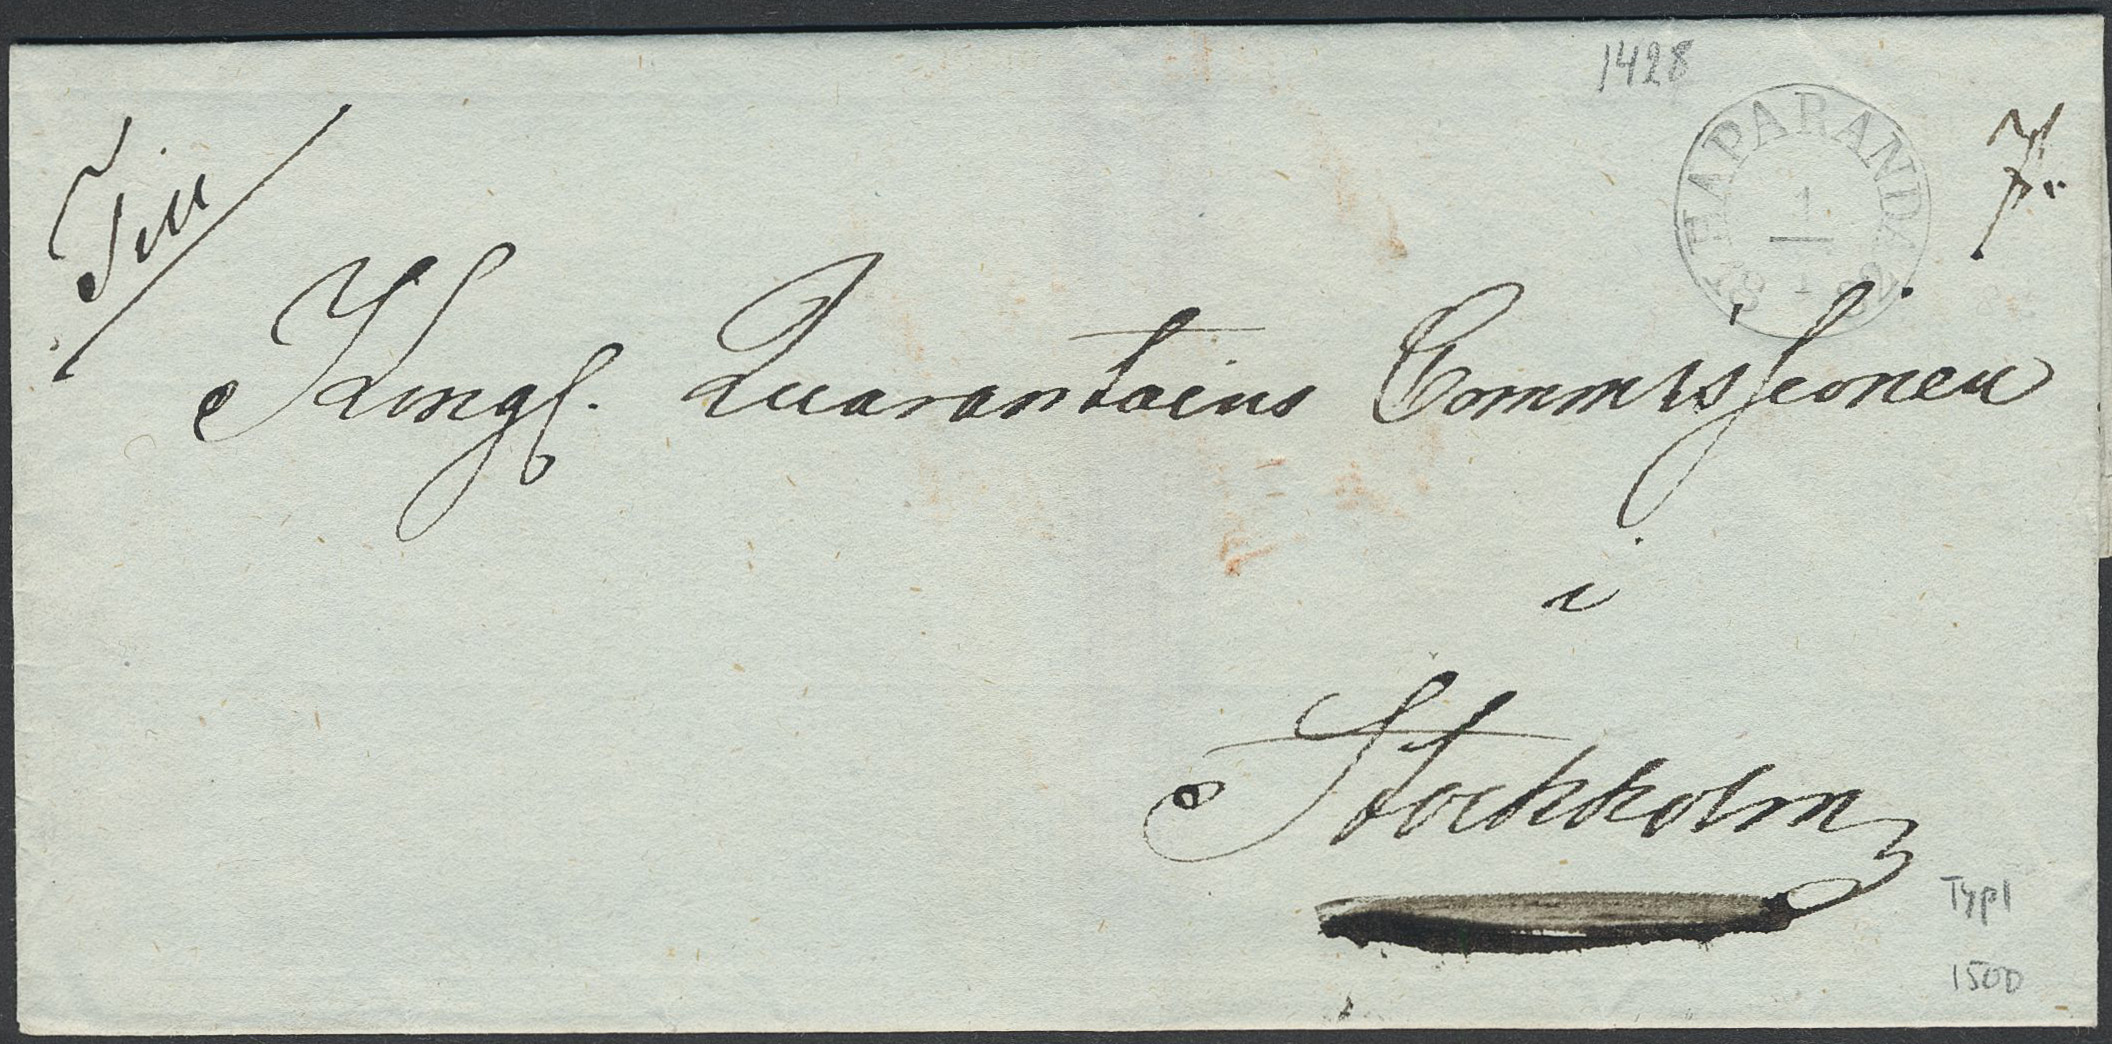 1428
HAPARANDA
1
1
Till
Kongl. Quarantains Commissionen
i
Stockholm
Typ1
1500